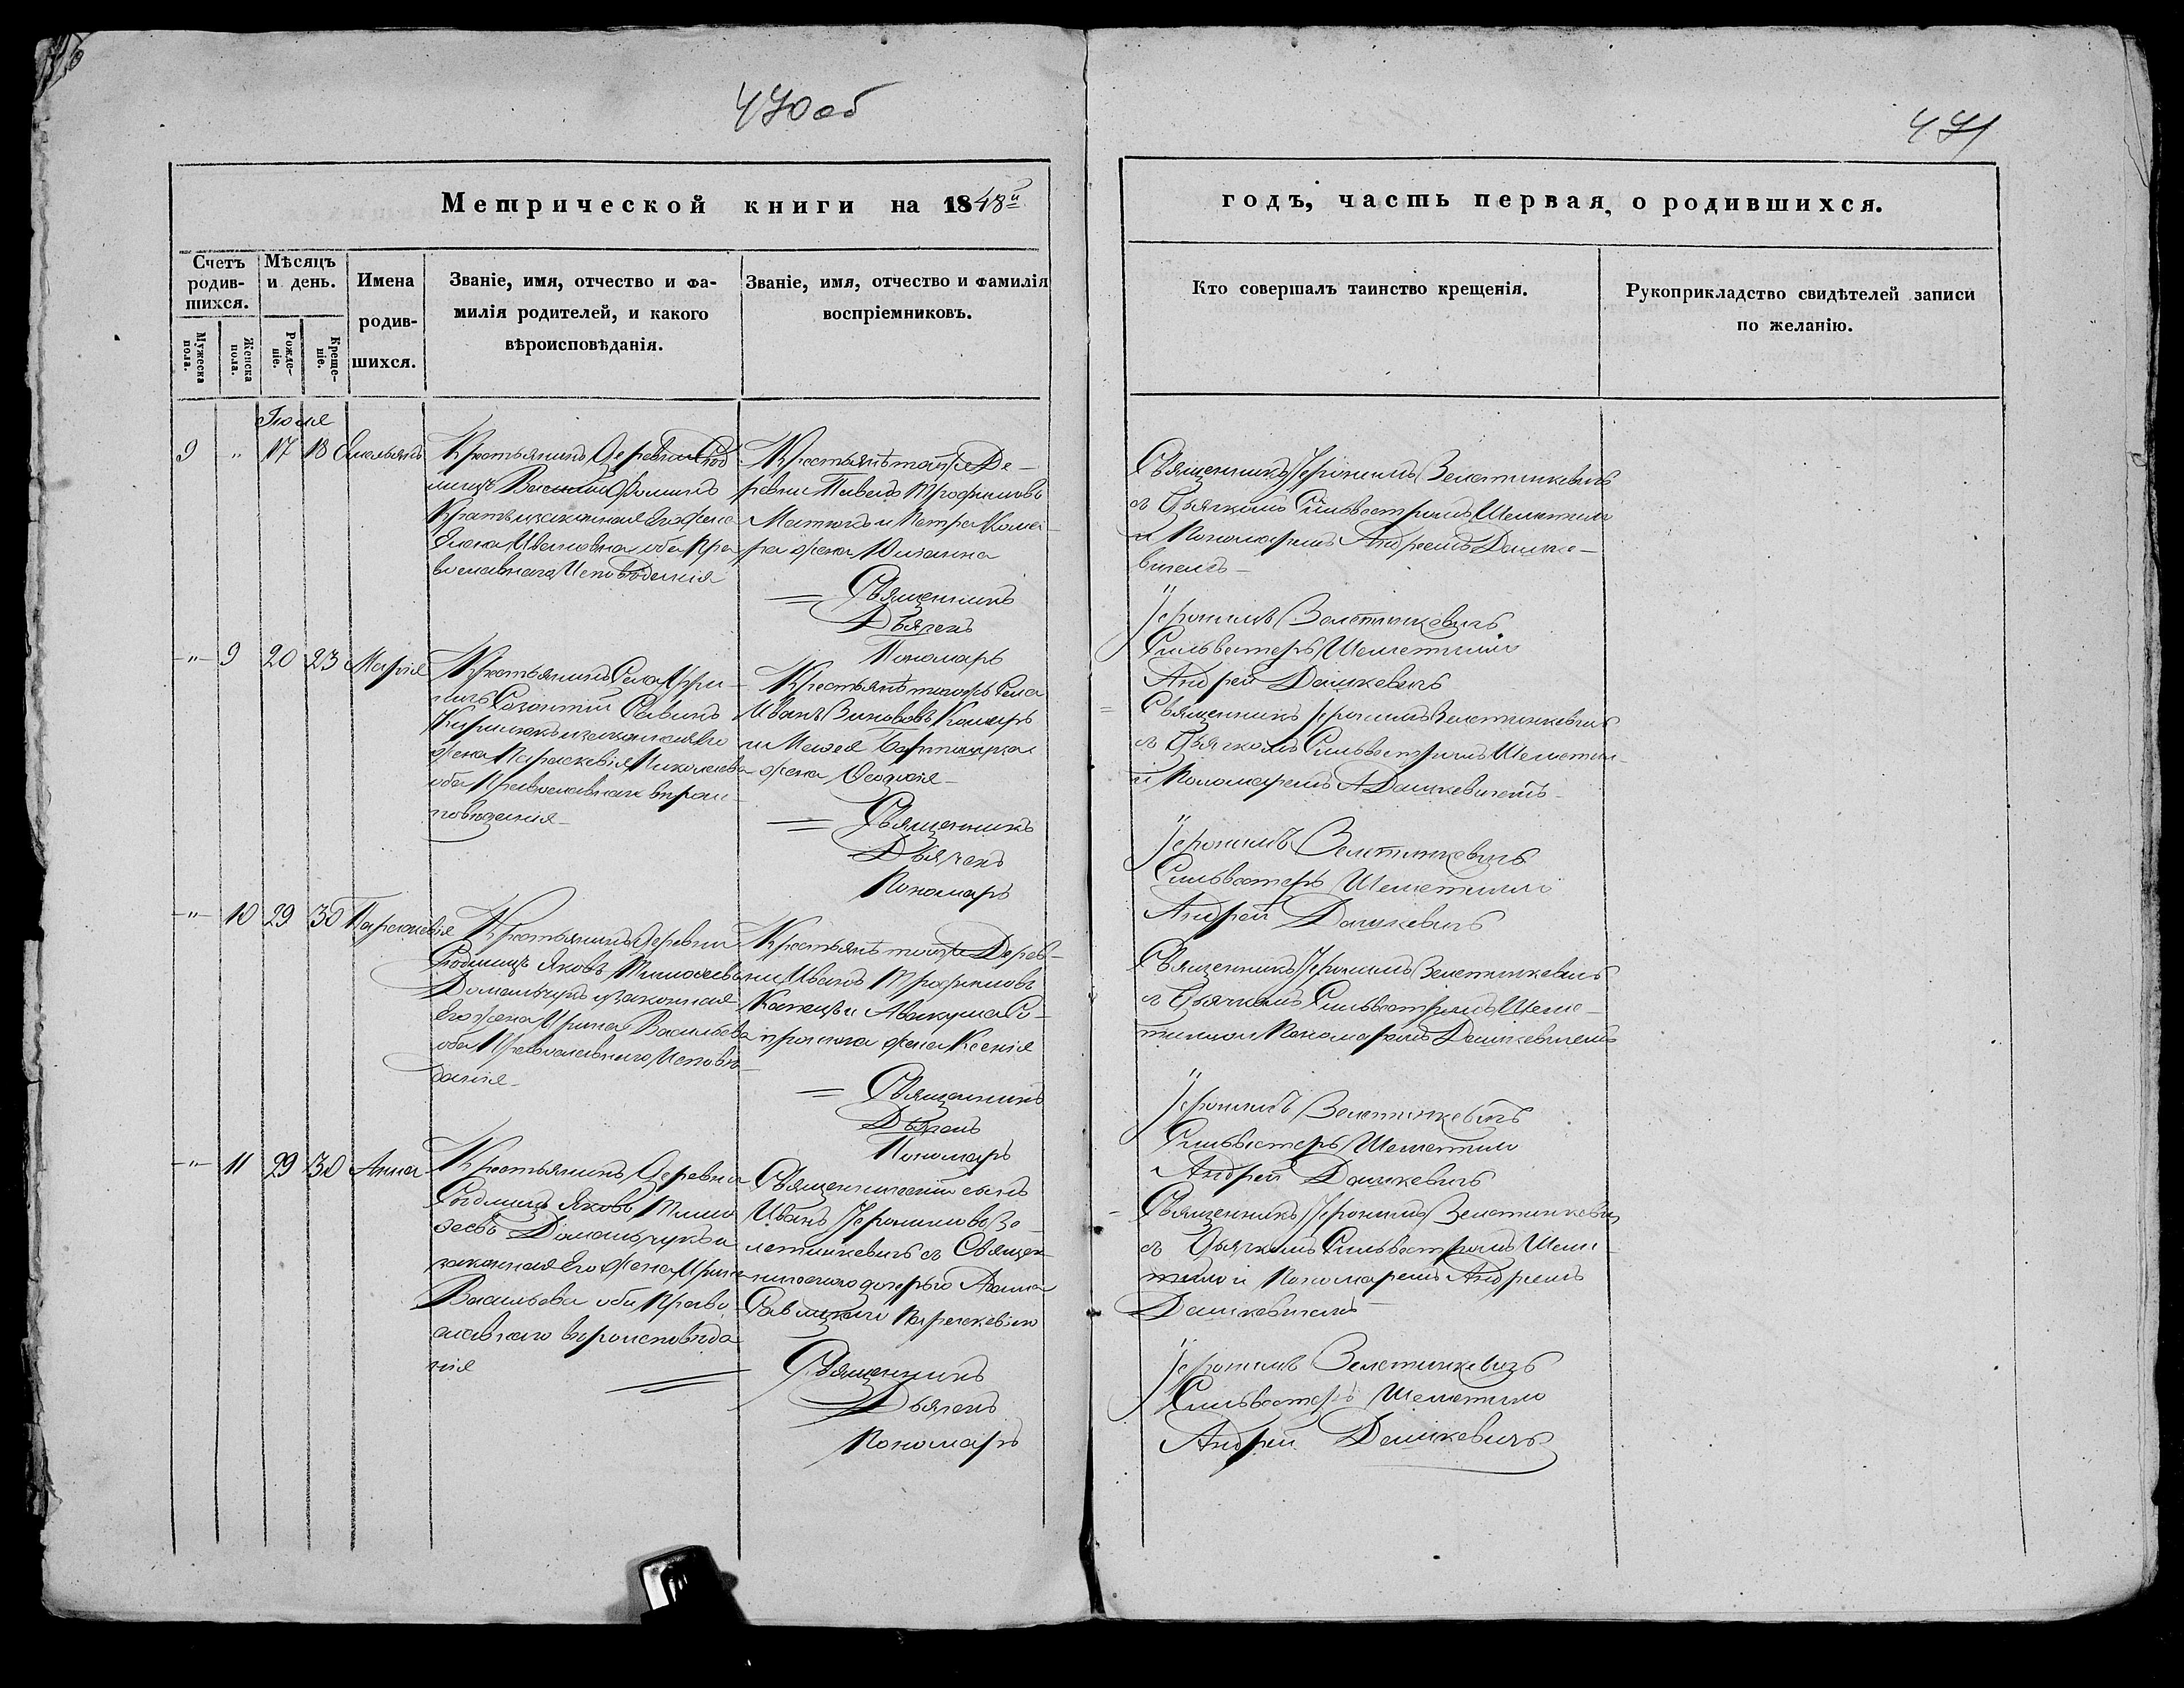 470 об
471
Метрической книги на 1848й
годъ, часть первая, о родившихся.
Счетъ родившихся.
Мужеска пола.
Женска пола.
Мѣсяцъ и день.
Рожденіе.
Крещеніе.
Имена родившихся.
Званіе, имя, отчество и фамилія родителей, и какого вѣроисповѣданія.
Званіе, имя, отчество и фамилія воспріемниковъ.
Кто совершалъ таинство крещенія.
Рукоприкладство свидѣтелей записи по желанію.
Іюля
9 " 17 18 Емельянъ
Крестьянинъ Деревни
Василій Фоминъ
законная Его жена
Ивановна оба Пра
вославнаго Исповѣданія
Крестьянѣ тойже Де-
ревни Павелъ Трофимовъ
и Петра
жена
Священникъ
Дьячекъ
Пономарь
Священникъ Іеронимъ Зелетинкевичъ
съ Дьячкомъ Сильвестромъ Шеметило
и Пономаремъ Андреемъ Дашке-
вичемъ
Іеронимъ Зелетинкевичъ
Сильвестеръ Шеметило
Андрей Дашкевичъ
-"- 9 20 23 Марія
Крестьянинъ Села
Созонтій Савинъ
и законная Его
жена Параскевія Николаева
оба Православнаго вѣроис-
повѣданія
Крестьянѣ тогожъ Села
Иванъ
и
жена Ѳеодосія
Священникъ
Дьячекъ
Пономарь
Священникъ Іеронимъ Зелетинкевичъ
съ Дьячкомъ Сильвестромъ Шемети-
и Пономаремъ А Дашкевичемъ
Іеронимъ Зелетинкевичъ
Сильвестеръ Шеметило
Андрей Дашкевичъ
-"- 10 29 30 Параскевія
Крестьянинъ Деревни
Яковъ Тимоѳеевъ
Доманчукъ и законная
Его жена Ирина Васильева
оба Православнаго Исповѣ-
данія
Крестьянѣ тойже Дерев-
ни Иванъ Трофимовъ
и Авакума
жена Ксенія
Священникъ
Дьячекъ
Пономарь
Священникъ Іеронимъ Зелетинкевичъ
съ Дьячкомъ Сильвестромъ Шеме-
тиломъ и Пономаремъ Дашкевичемъ
Іеронимъ Зелетинкевичъ
Сильвестеръ Шеметило
Андрей Дашкевичъ
-"- 11 29 30 Анна
Крестьянинъ Деревни
Яковъ Тимо
ѳеевъ Доманчукъ и
законная Его жена Ирина
Васильева оба Право-
славнаго вѣроисповѣда
нія
Священническій сынъ
Иванъ Іеронимовъ Зе-
летинкевичъ съ Священ-
нической дочерью
Савицкаго Параскевіею
Священникъ
Дьячекъ
Пономарь
Священникъ Іеронимъ Зелетинкевичъ
съ Дьячкомъ Сильвестромъ Шеме-
тило и Пономаремъ Андреемъ
Дашкевичемъ
Іеронимъ Зелетинкевичъ
Сильвестеръ Шеметило
Андрей Дашкевичъ